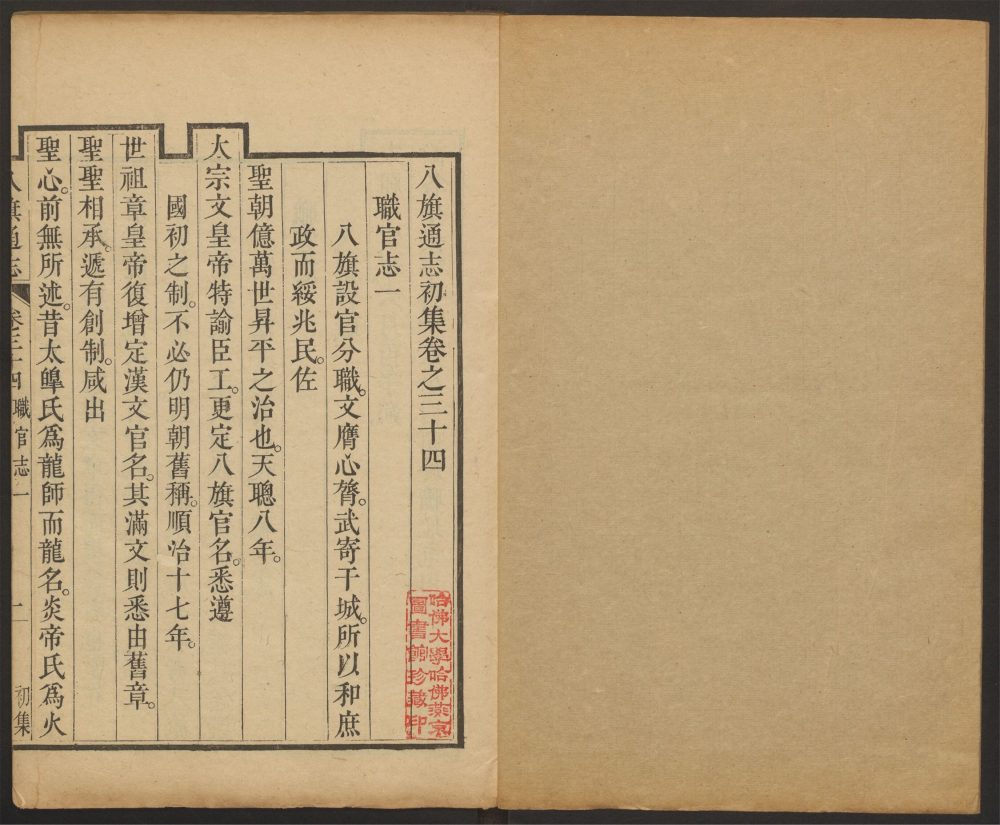 八旗通志初集卷之三十四
職官志一
八旗設官分職。文膺心膂。武寄干城。所以和庶
政而綏兆民。佐
聖朝億萬世昇平之治也。天聰八年。
太宗文皇帝特諭臣工。更定八旗官名。悉遵
國初之制。不必仍明朝舊稱。順治十七年。
世祖章皇帝復增定漢文官名。其滿文則悉由舊章。
聖聖相承。遞有創制。咸出
聖心。前無所述。昔太皥氏爲龍師而龍名。炎帝氏爲火
八旗通志 卷三十四 職官志一 初集
哈佛大學哈佛燕京
圖書館珍藏印